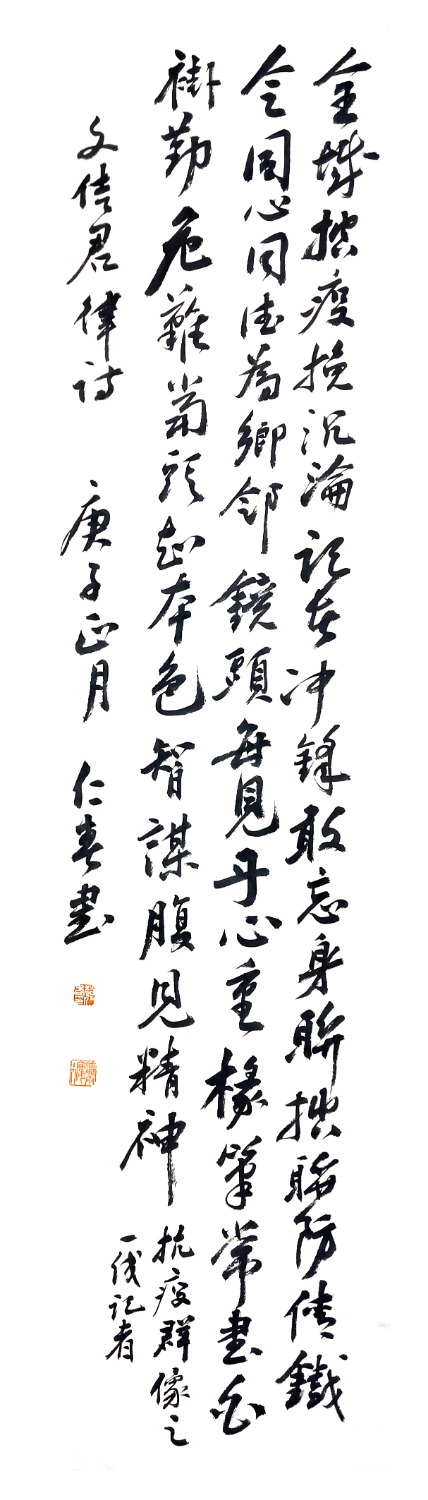 全城控疫挽沉淪記者冲鋒敢忘身聯控聯防傳鐵
令同心同德為鄉鄰鏡頭每見丹心重椽筆常書白
衣勤危難當頭知本色智謀腹見精神
抗疫群像之
一线记者
文佳君律诗 庚子正月 仁春書